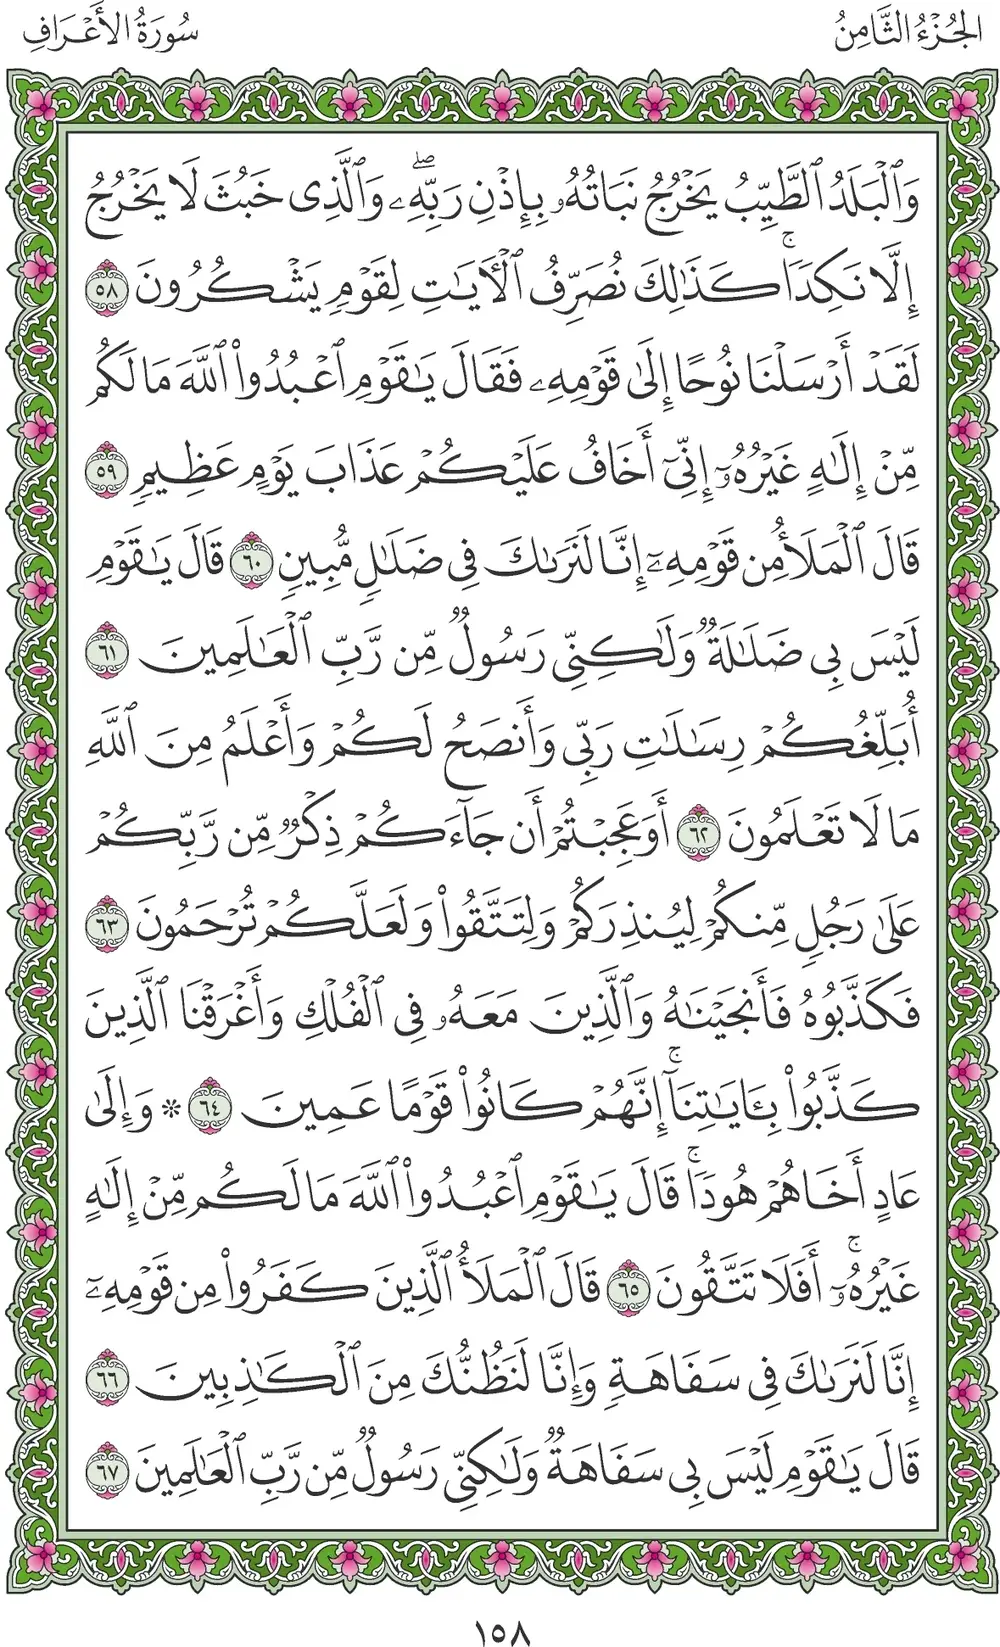 الجُزْءُ الثَّامِنُ
سُورَةُ الأَعْرَافِ
وَٱلْبَلَدُ ٱلطَّيِّبُ يَخْرُجُ نَبَاتُهُۥ بِإِذْنِ رَبِّهِۦۖ وَٱلَّذِى خَبُثَ لَا يَخْرُجُ
إِلَّا نَكِدًاۚ كَذَٰلِكَ نُصَرِّفُ ٱلْـَٔايَٰتِ لِقَوْمٍ يَشْكُرُونَ ٥٨
لَقَدْ أَرْسَلْنَا نُوحًا إِلَىٰ قَوْمِهِۦ فَقَالَ يَٰقَوْمِ ٱعْبُدُوا۟ ٱللَّهَ مَا لَكُم
مِّنْ إِلَٰهٍ غَيْرُهُۥٓ إِنِّىٓ أَخَافُ عَلَيْكُمْ عَذَابَ يَوْمٍ عَظِيمٍ ٥٩
قَالَ ٱلْمَلَأُ مِن قَوْمِهِۦٓ إِنَّا لَنَرَىٰكَ فِى ضَلَٰلٍ مُّبِينٍ ٦٠ قَالَ يَٰقَوْمِ
لَيْسَ بِى ضَلَٰلَةٌ وَلَٰكِنِّى رَسُولٌ مِّن رَّبِّ ٱلْعَٰلَمِينَ ٦١
أُبَلِّغُكُمْ رِسَٰلَٰتِ رَبِّى وَأَنصَحُ لَكُمْ وَأَعْلَمُ مِنَ ٱللَّهِ
مَا لَا تَعْلَمُونَ ٦٢ أَوَعَجِبْتُمْ أَن جَآءَكُمْ ذِكْرٌ مِّن رَّبِّكُمْ
عَلَىٰ رَجُلٍ مِّنكُمْ لِيُنذِرَكُمْ وَلِتَتَّقُوا۟ وَلَعَلَّكُمْ تُرْحَمُونَ ٦٣
فَكَذَّبُوهُ فَأَنجَيْنَٰهُ وَٱلَّذِينَ مَعَهُۥ فِى ٱلْفُلْكِ وَأَغْرَقْنَا ٱلَّذِينَ
كَذَّبُوا۟ بِـَٔايَٰتِنَآۚ إِنَّهُمْ كَانُوا۟ قَوْمًا عَمِينَ ٦٤ * وَإِلَىٰ
عَادٍ أَخَاهُمْ هُودًاۚ قَالَ يَٰقَوْمِ ٱعْبُدُوا۟ ٱللَّهَ مَا لَكُم مِّنْ إِلَٰهٍ
غَيْرُهُۥٓۚ أَفَلَا تَتَّقُونَ ٦٥ قَالَ ٱلْمَلَأُ ٱلَّذِينَ كَفَرُوا۟ مِن قَوْمِهِۦٓ
إِنَّا لَنَرَىٰكَ فِى سَفَاهَةٍ وَإِنَّا لَنَظُنُّكَ مِنَ ٱلْكَٰذِبِينَ ٦٦
قَالَ يَٰقَوْمِ لَيْسَ بِى سَفَاهَةٌ وَلَٰكِنِّى رَسُولٌ مِّن رَّبِّ ٱلْعَٰلَمِينَ ٦٧
١٥٨